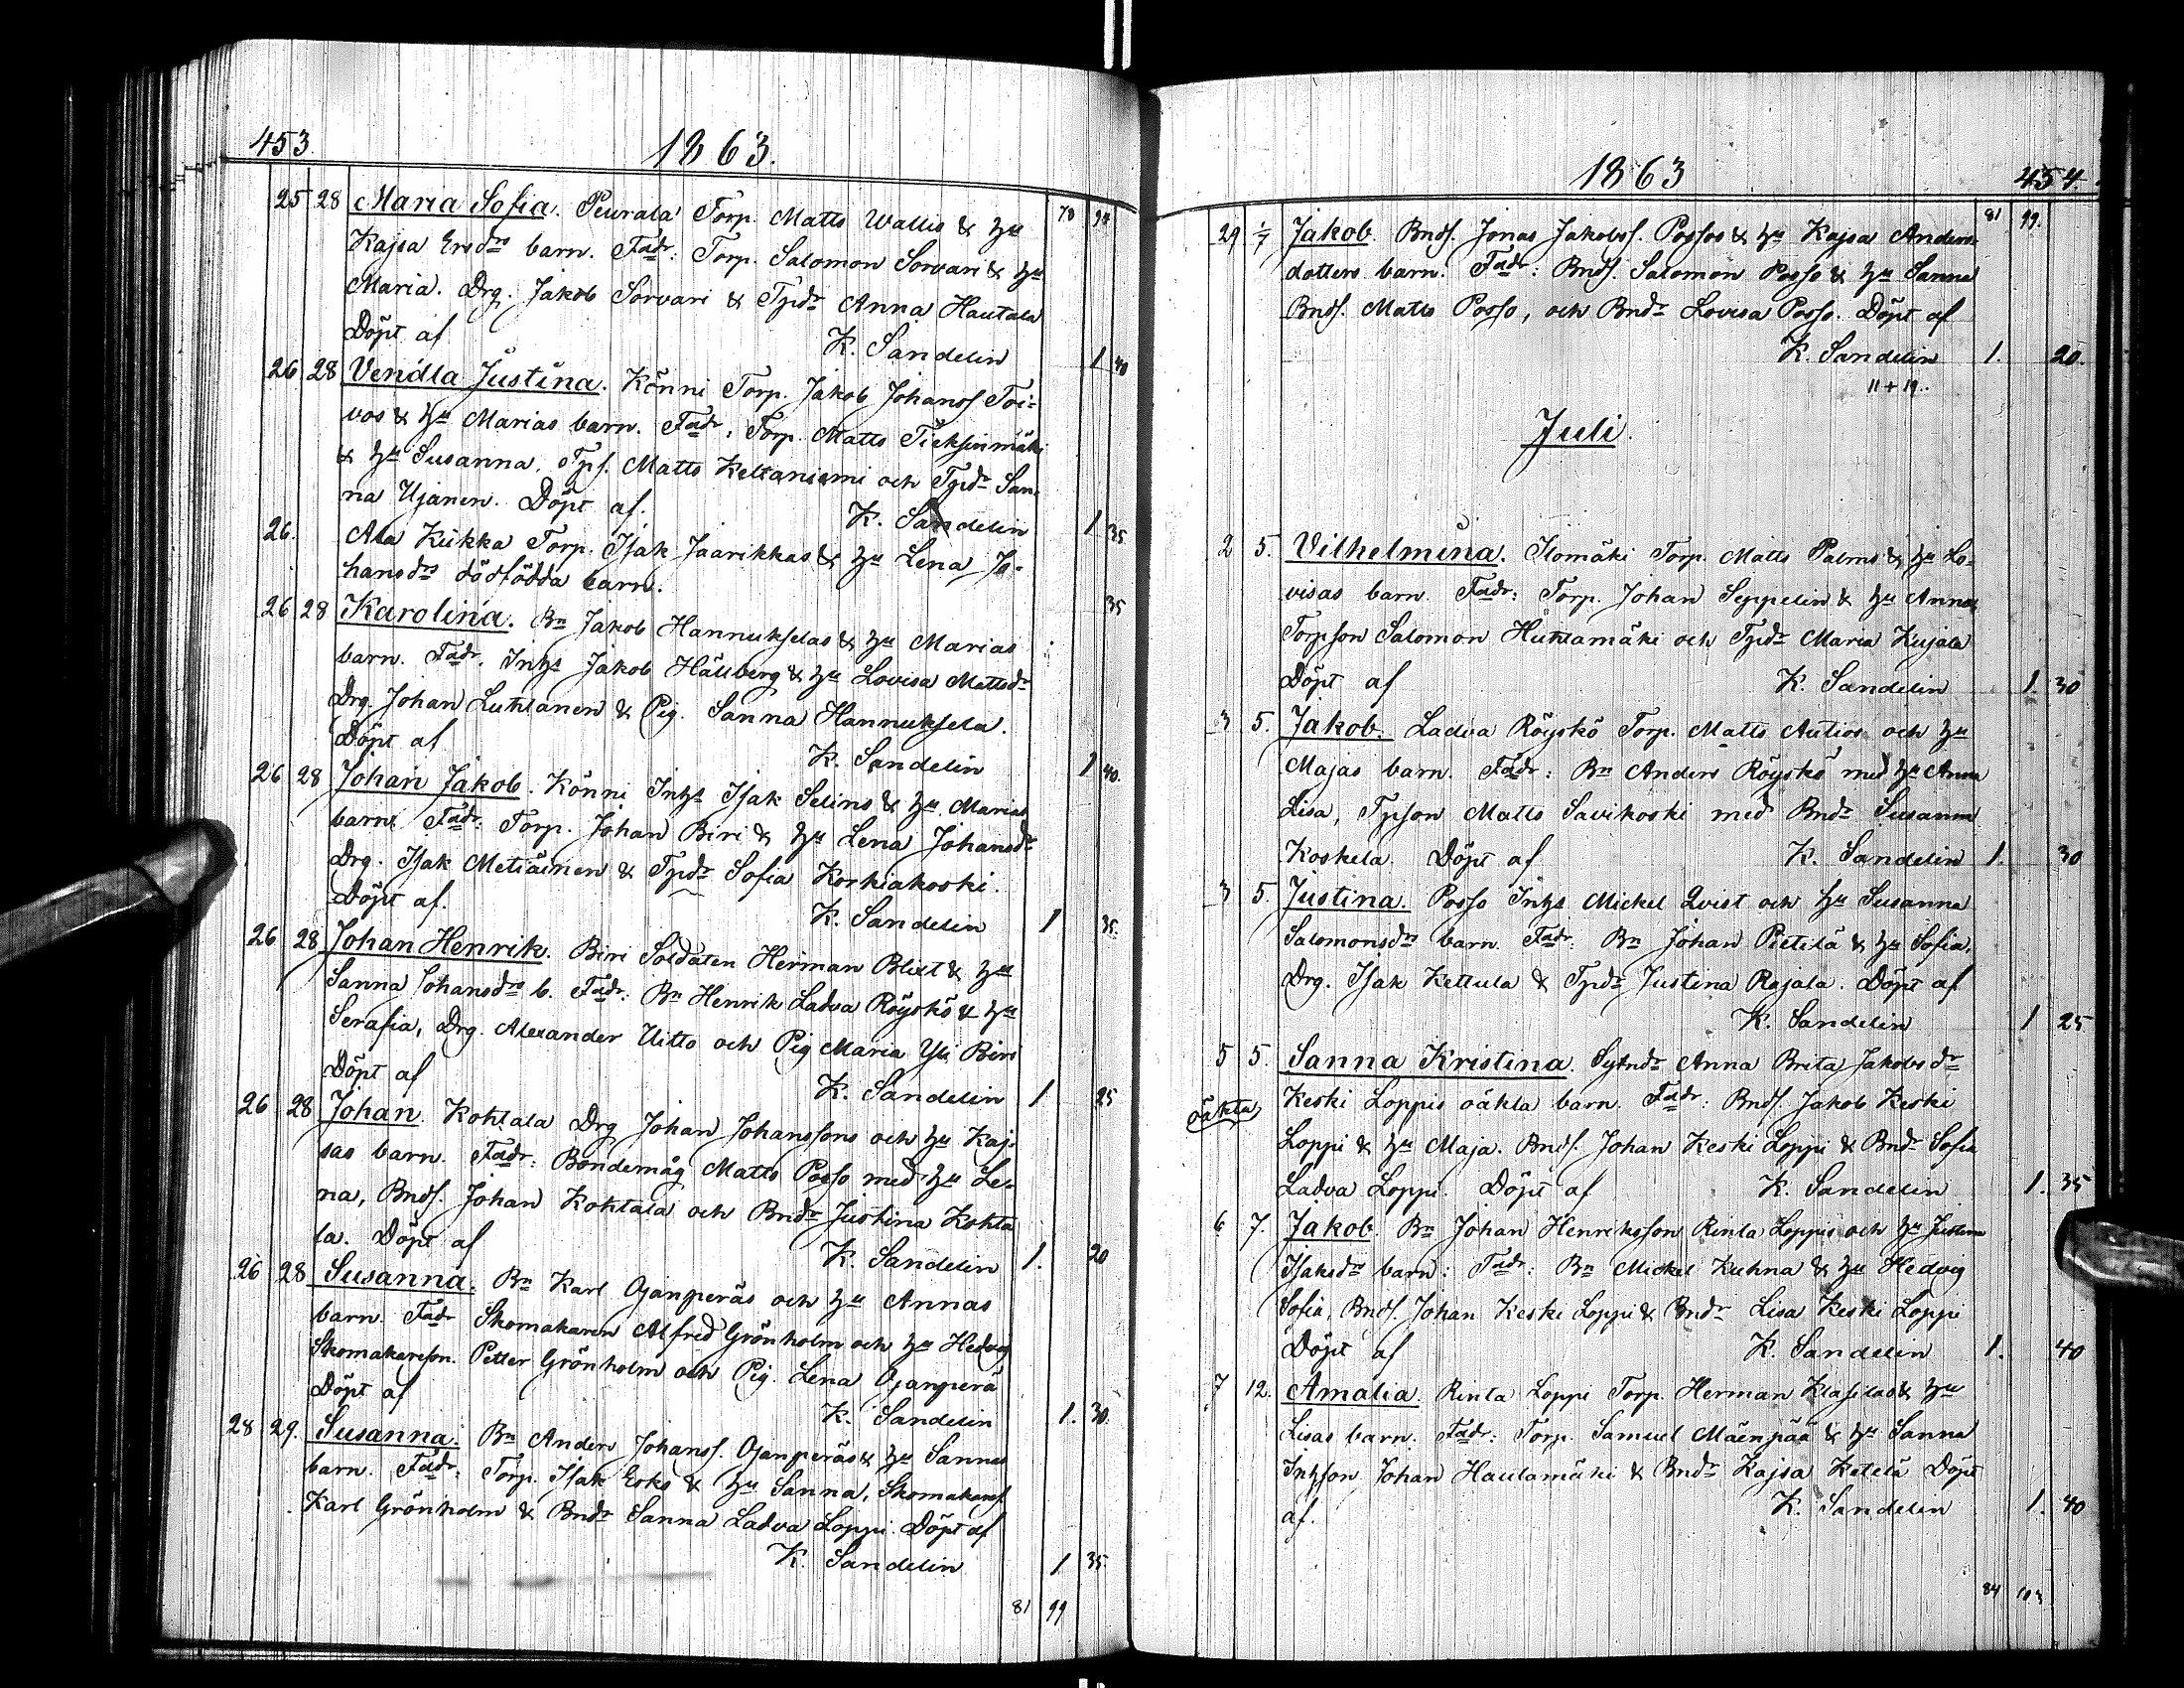 453.
1863.
78 94
25 28 Maria Sofia. Peurala Torp. Matts Wallis & hu
Kajsa Ersdrs barn. Fadr: Torp. Salomon Sorvari & hu
Maria. Drg. Jakob Sorvari & Tpdr Anna Hautala
Döpt af K. Sandelin 1 40
26 28 Vendla Justina. Könni Torp. Jakob Johanss Toi-
vos & hu Marias barn. Fadr. Torp. Matts Tieksinmäki
& hu Susanna. Tps. Matts Keltaniemi och Tpdr San-
na Ujanen. Döpt af. K. Sandelin 1 35
26. Ala Kukka Torp. Isak Jaarikkas & hu Lena Jo-
hansdrs dödfödda barn. 35
26 28 Karolina. Bn Jakob Hannukselas & hu Marias
barn. Fadr. Inhs Jakob Hällberg & hu Lovisa Mattsdr
Drg. Johan Luhtanen & Pig. Sanna Hannuksela.
Döpt af K. Sandelin 1 40.
26 28 Johan Jakob. Könni Inhs Isak Selins & hu Marias
barn. Fadr: Torp. Johan Biri & hu Lena Johansdr
Drg. Isak Metsäinen & Tpdr Sofia Korkiakoski.
Döpt af. K. Sandelin 1 35
26 28 Johan Henrik. Biri Soldaten Herman Blixt & hu
Sanna Johansdrs b. Fadr: Bn Henrik Ladva Röyskö & hu
Serafia, Drg. Alexander Uitto och Pig Maria Yli Biri
Döpt af K. Sandelin 1 25
26 28 Johan. Kohtala Drg Johan Johanssons och hu Kaj-
sas barn. Fadr: Bondemåg Matts Posso med hu Le-
na, Bnds. Johan Kohtala och Bndr Justina Kohta
la. Döpt af K. Sandelin 1. 20
26 28 Susanna. Bn Karl Ojanperäs och hu Annas
barn. Fadr Skomakaren Alfred Grönholm och hu Hedvig
Skomakareson. Petter Grönholm och Pig. Lena Ojanperä
Döpt af K. Sandelin 1. 30.
28 29. Susanna. Bn Anders Johanss. Ojanperäs & hu Sannas
barn. Fadr: Torp. Isak Erks & hu Sanna, Skomakares.
Karl Grönholm & Bndr Sanna Ladva Loppi. Döpt af
K. Sandelin 1 35
81 99
1863
454.
81 99.
29 1/7 Jakob. Bnds. Jonas Jakobss. Possos & hu Kajsa Anders-
dotters barn. Fadr: Bnds. Salomon Posso & hu Sanna
Bnds. Matts Posso, och Bndr Lovisa Posso. Döpt af
K. Sandelin 1. 20.
11 + 19.
Juli.
2 5. Vilhelmina. Ilomäki Torp. Matts Palms & hu Lo-
visas barn. Fadr: Torp. Johan Seppelin & hu Anna
Torpson Salomon Huhtamäki och Tpdr Maria Kujala
Döpt af K. Sandelin 1. 30
3 5. Jakob. Ladva Röyskö Torp. Matts Autios och hu
Majas barn. Fadr: Bn Anders Röyskö med hu Anna
Lisa, Tpson Matts Savikoski med Bndr Susanna
Koskela. Döpt af K. Sandelin 1. 30
3 5. Justina. Posso Inhs Mickel Qvist och hu Susanna
Salomonsdrs barn. Fadr: Bn Johan Pietilä & hu Sofia,
Drg. Isak Kettula & Tpdr Justina Rajala. Döpt af
K. Sandelin 1 25
5 5. Sanna Kristina. Sytndr Anna Brita Jakobsdr
oäkta Keski Loppis oäkta barn. Fadr: Bnds. Jakob Keski
Loppi & hu Maja. Bnds. Johan Keski Loppi & Bndr Sofia
Ladva Loppi. Döpt af K. Sandelin 1. 35
6 7. Jakob. Bn Johan Henriksson Rinta Loppis och hu Justina
Isaksdrs barn: Fadr: Bn Mickel Kuhna & hu Hedvig
Sofia, Bnds. Johan Keski Loppi & Bndr Lisa Keski Loppi
Döpt af K. Sandelin 1. 40
7 12. Amalia. Rinta Loppi Torp. Herman Klasilas & hu
Lisas barn. Fadr: Torp. Samuel Mäenpää & hu Sanna
Inhson Johan Hautamäki & Bndr Kajsa Ketelä Döpt
af. K. Sandelin 1. 40
84 103